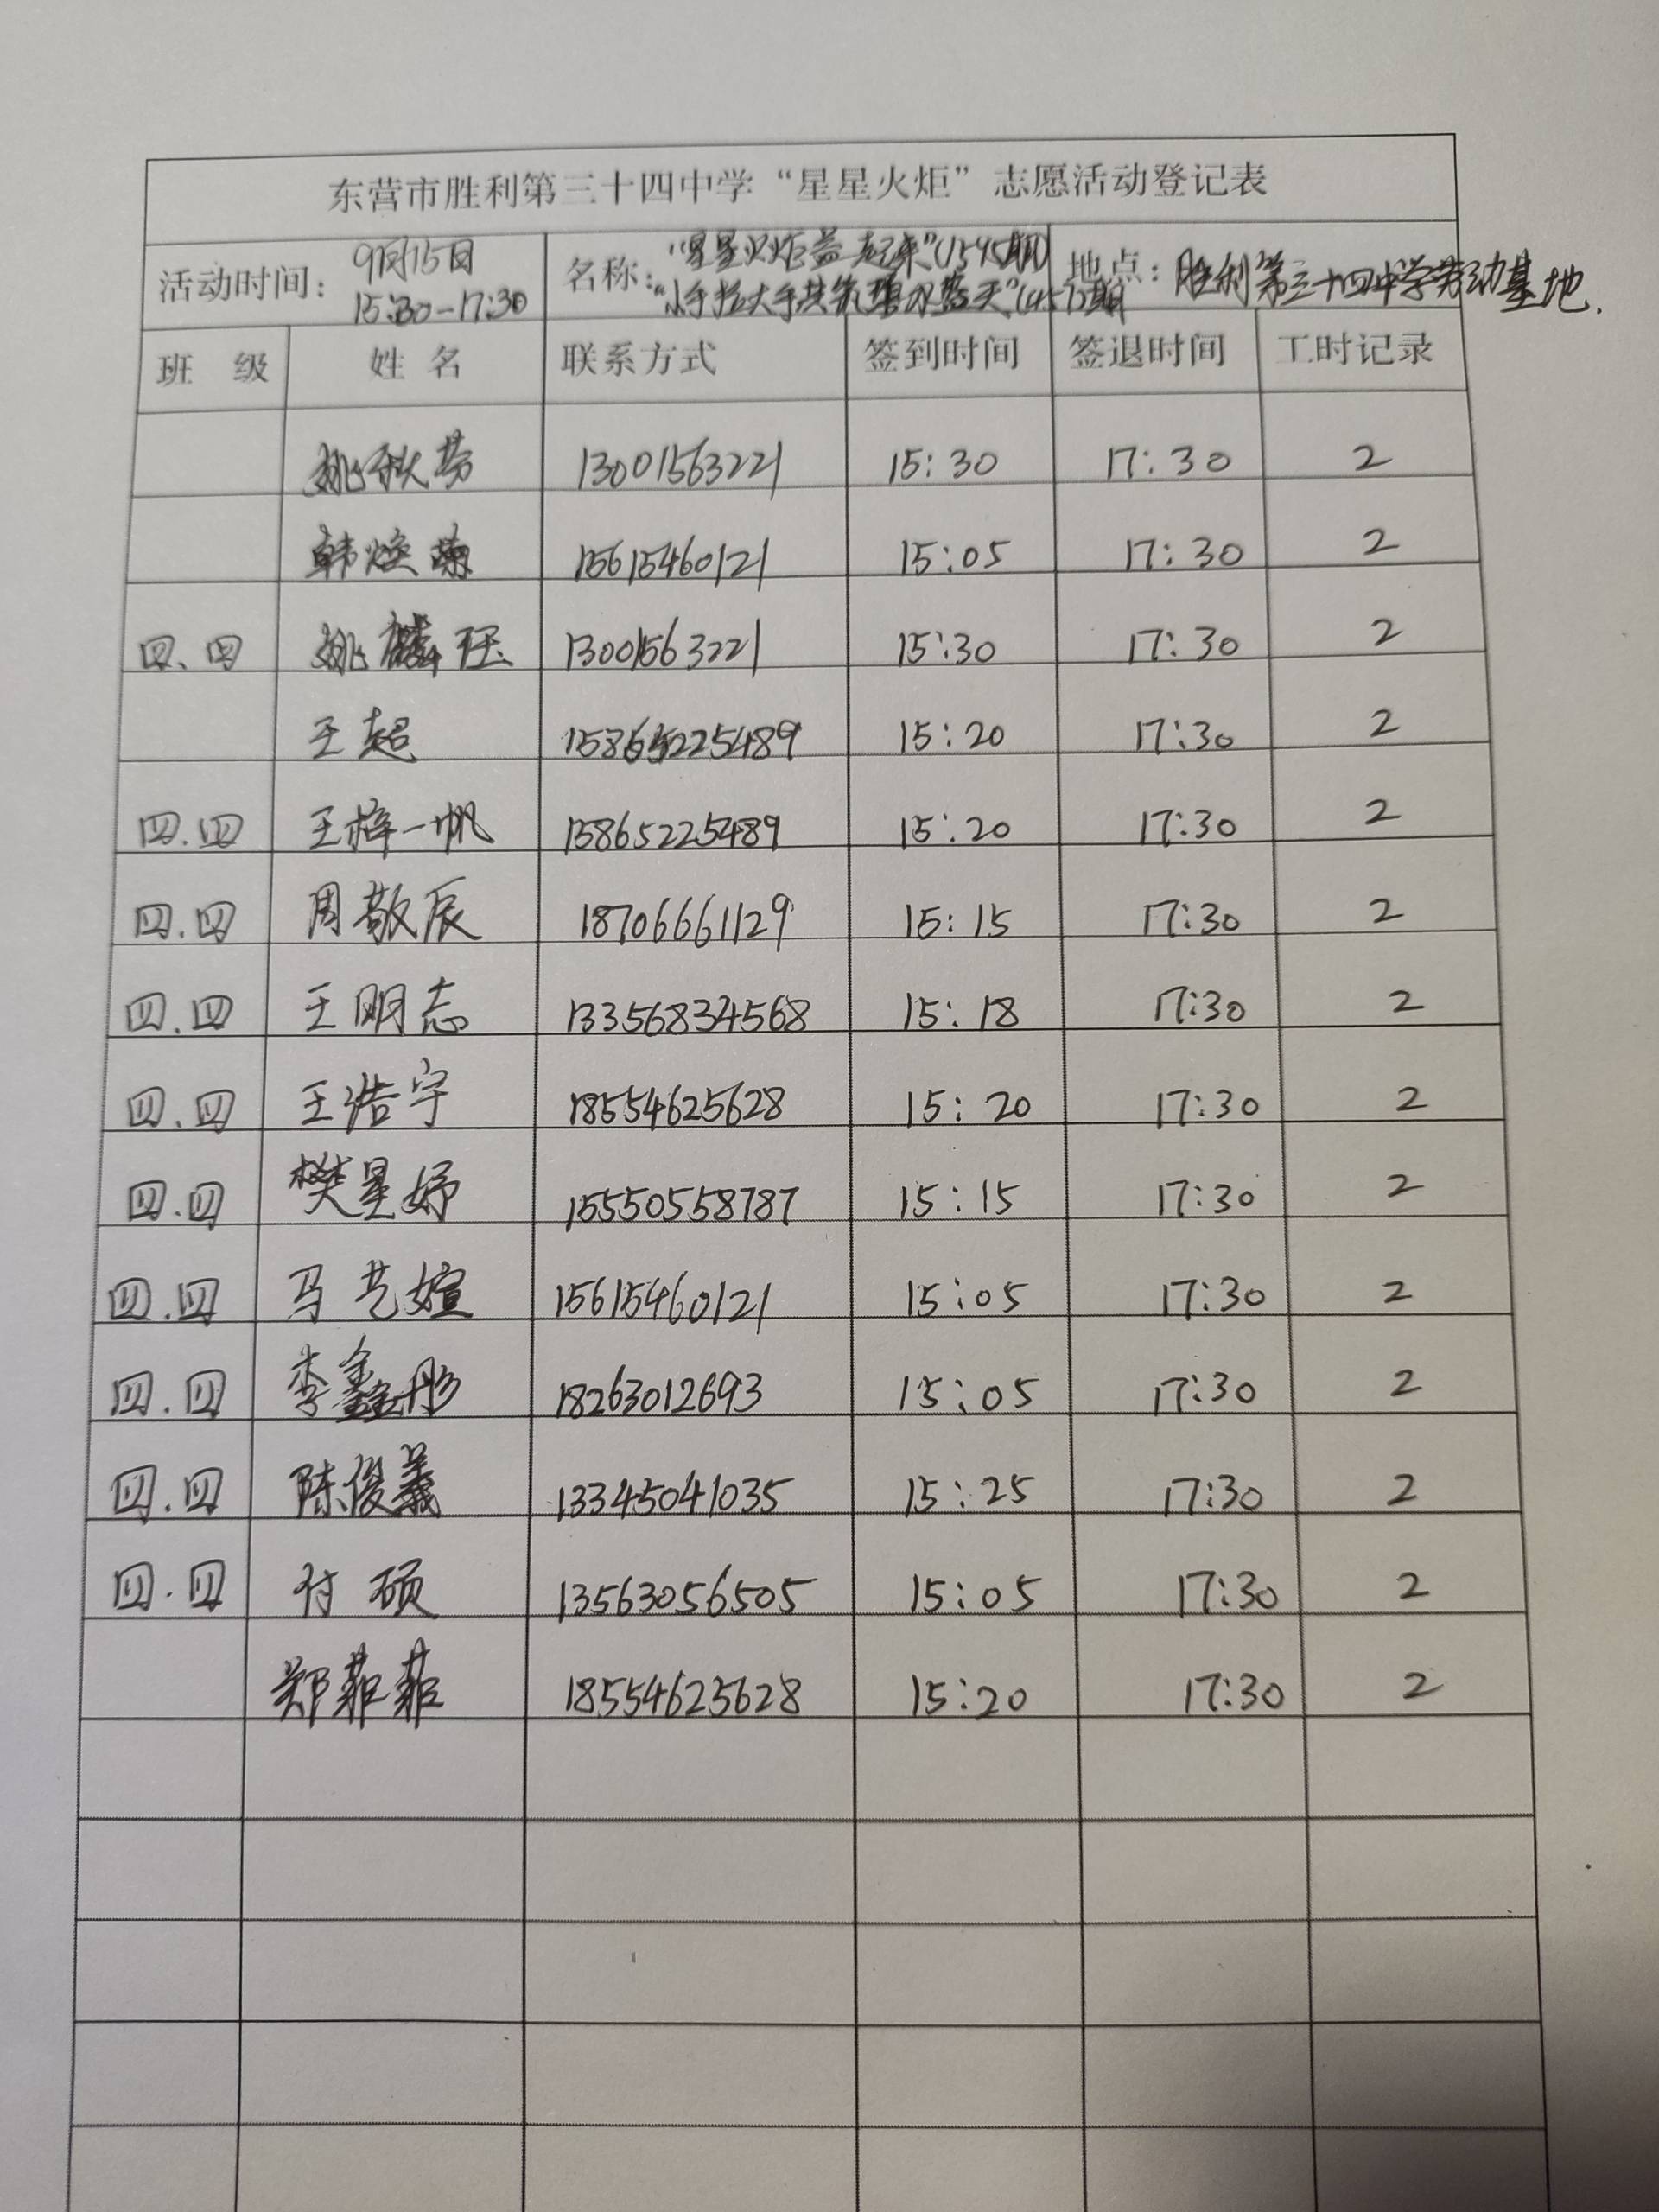 东营市胜利第三十四中学“星星火炬”志愿活动登记表
活动时间: 9月15日 15:30-17:30 名称: “星星火炬益起来”(1545期) “小手拉大手共筑碧水蓝天” 地点: 胜利第三十四中学劳动基地.
班 级 姓 名 联系方式 签到时间 签退时间 工时记录
姚秋芬 13001563221 15:30 17:30 2
韩焕 15615460121 15:05 17:30 2
四.四 姚麟珏 13001563221 15:30 17:30 2
王超 15865225489 15:20 17:30 2
四.四 王梓一帆 15865225489 15:20 17:30 2
四.四 周敬辰 18706661129 15:15 17:30 2
四.四 王明志 13356834568 15:18 17:30 2
四.四 王浩宇 18554625628 15:20 17:30 2
四.四 樊星妤 15550558787 15:15 17:30 2
四.四 马艺媗 15615460121 15:05 17:30 2
四.四 李鑫彤 18263012693 15:05 17:30 2
四.四 陈俊羲 13345041035 15:25 17:30 2
四.四 付硕 13563056505 15:05 17:30 2
郑菲菲 18554625628 15:20 17:30 2